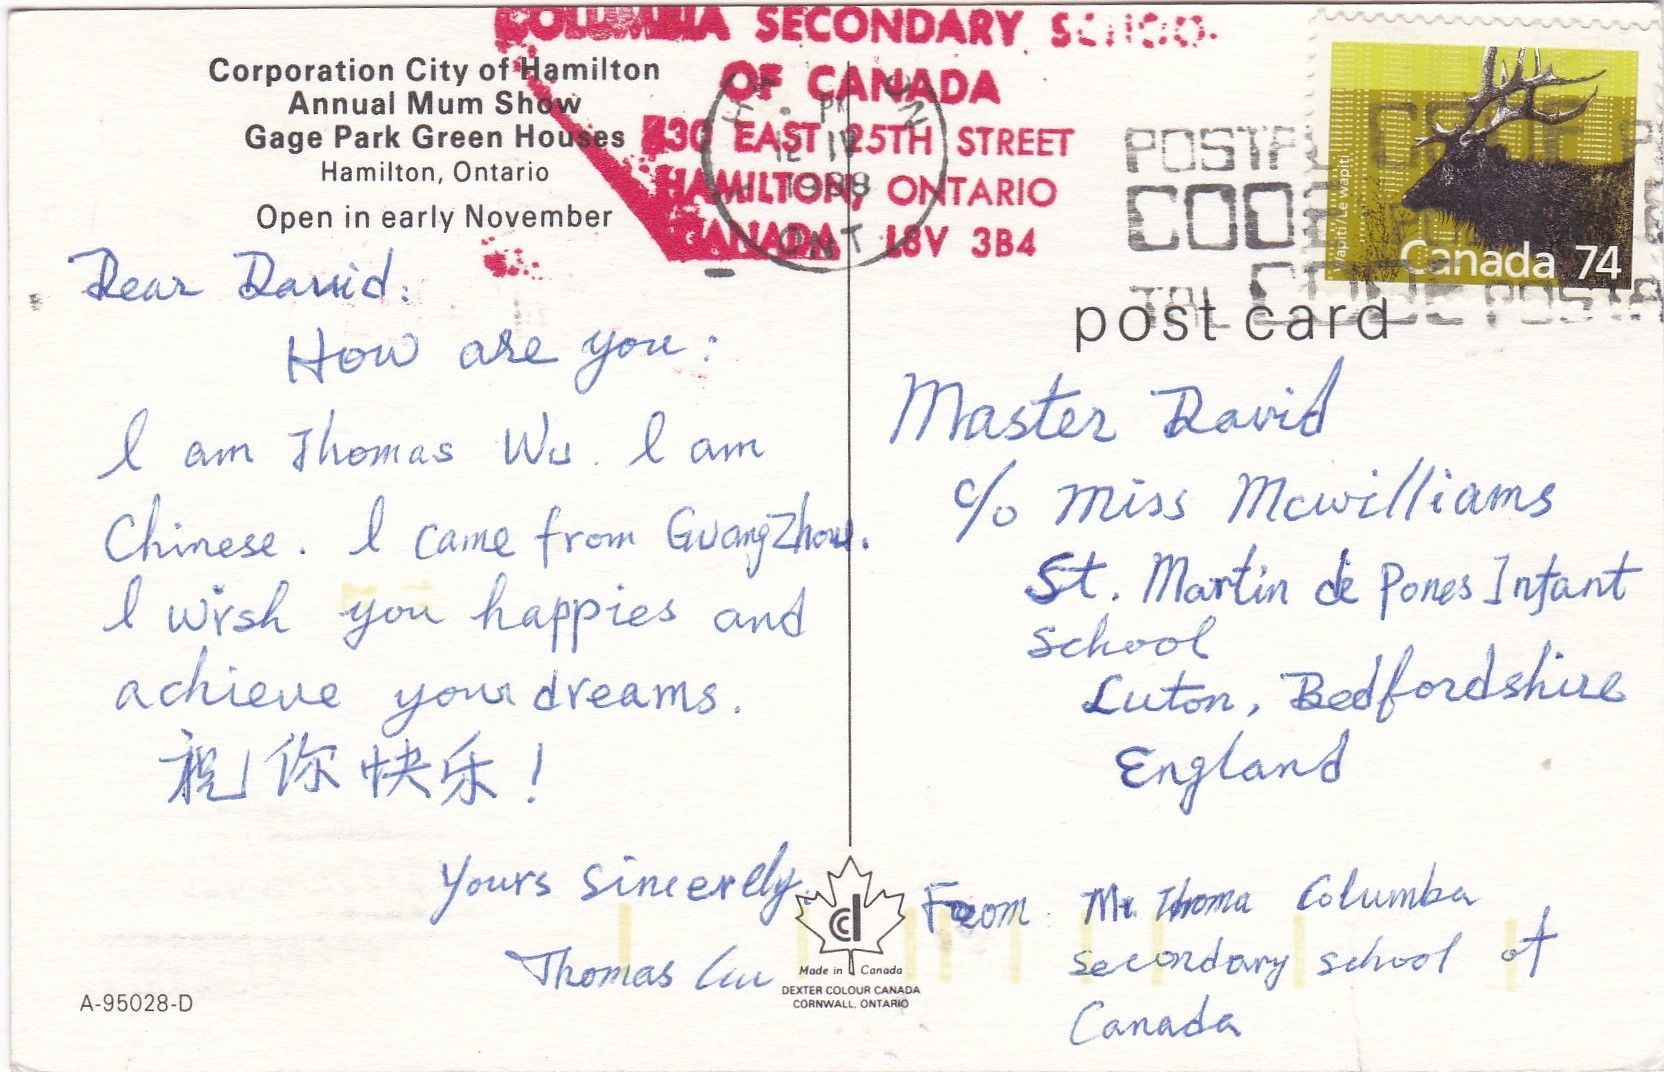 Corporation City of Hamilton
Annual Mum Show
Gage Park Green Houses
Hamilton, Ontario
Open in early November
COLUMBIA SECONDARY SCHOO
OF CANADA
530 EAST 25TH STREET
HAMILTON, ONTARIO
CANADA L8V 3B4
PM
12 IV
1988
ONT
POSTAL CODE
CODE
Wapiti/Le wapiti
Canada 74
post card
Dear David:
How are you:
I am Thomas Wu. I am
Chinese. I came from GuangZhou.
I wish you happies and
achieve your dreams.
祝你快乐!
Yours sincerely
Thomas
Master David
c/o Miss Mcwilliams
St. Martin de Pones Infant
school
Luton, Bedfordshire
England
From: Mr. Thoma Columba
secondary school of
Canada
ccl
Made in Canada
DEXTER COLOUR CANADA
CORNWALL, ONTARIO
A-95028-D